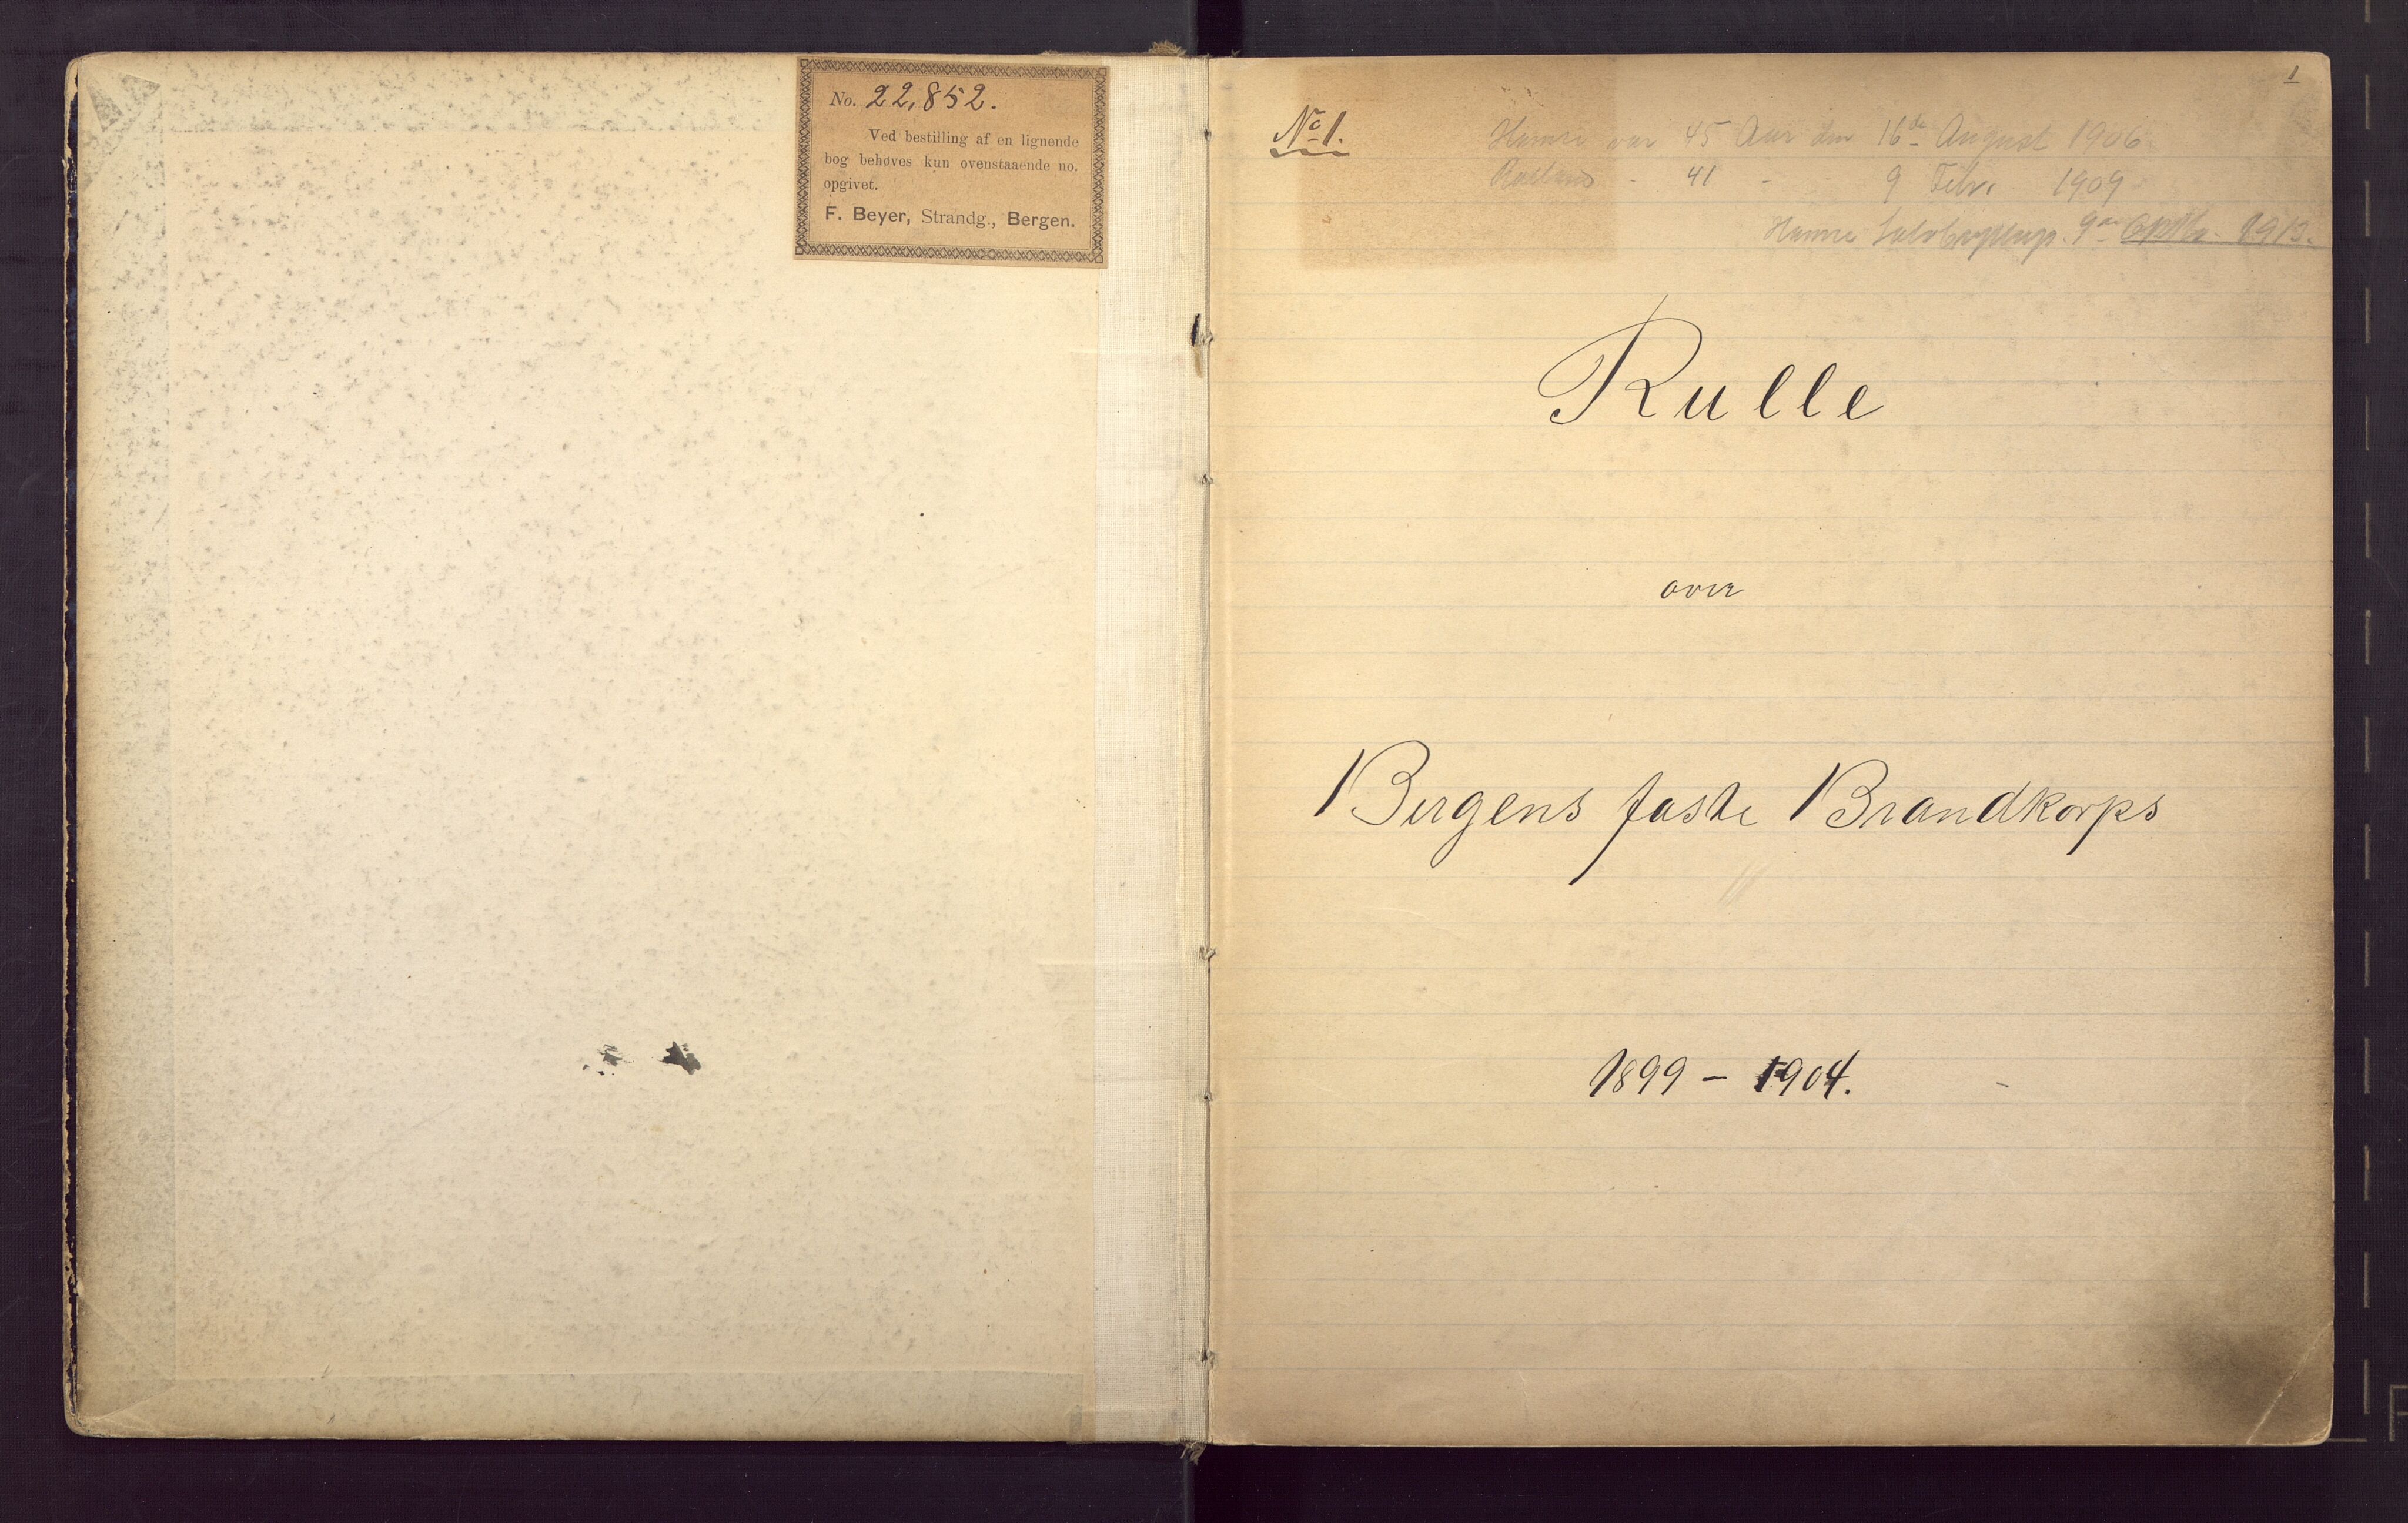 No. 22,852.
Ved bestilling af en lignende
bog behøves kun ovenstaaende no.
opgivet.
F. Beyer, Strandg., Bergen.
1
No 1.
Hamre var 45 Aar den 16de August 1906
- 41 - - 9 Febr. 1909
Hamre 9de 1913.
Rulle
over
Bergens faste Brandkorps
1899 - 1904.